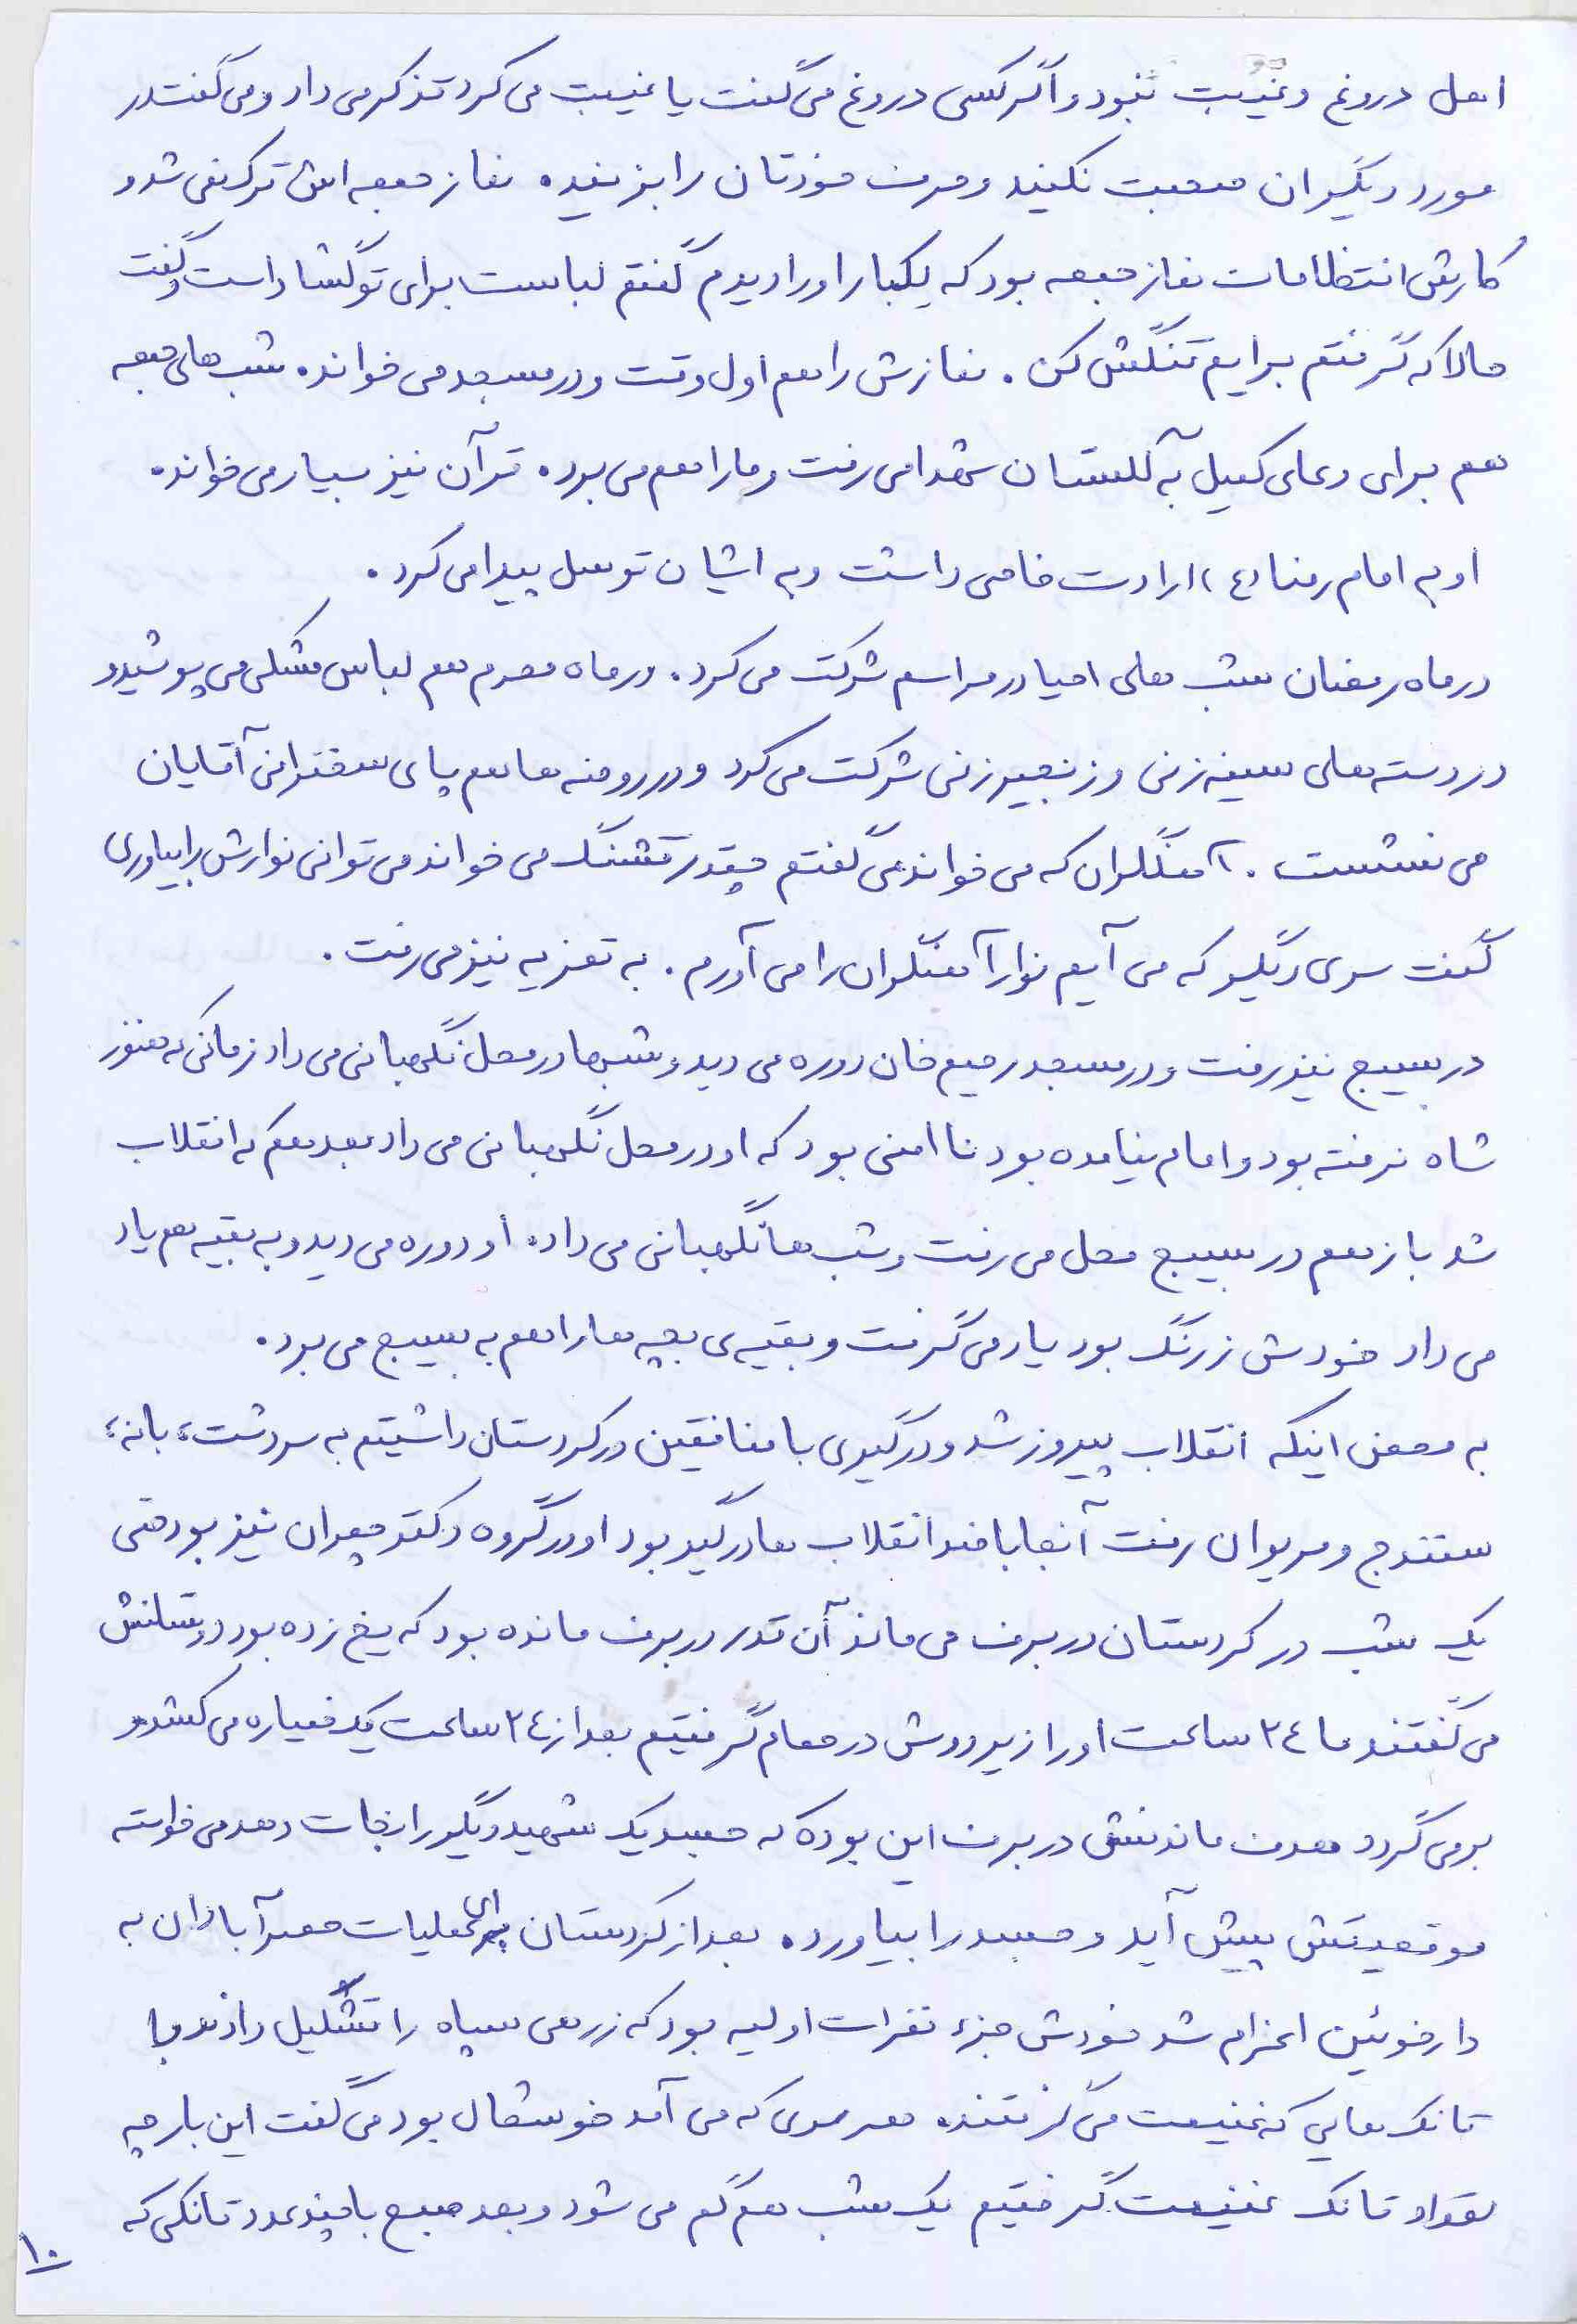 اهل دروغ و غیبت نبود و اگر کسی دروغ می گفت یا غیبت می کرد تذکر می داد و می گفت در
مورد دیگران صحبت نکنید و حرف خودتان را بزنید. نماز جمعه اش ترک نمی شد و
کارش انتظامات نماز جمعه بود که یکبار او را دیدم گفتم لباست برای تو گشاد است و گفت
حالا که گرفتم برایم تنگش کن. نمازش را هم اول وقت و در مسجد می خواند. شب های جمعه
هم برای دعای کمیل به گلستان شهدا می رفت و ما را هم می برد. قرآن نیز بسیار می خواند.
او به امام رضا (ع) ارادت خاصی داشت و به ایشان توسل پیدا می کرد.
در ماه رمضان شب های احیا در مراسم شرکت می کرد. در ماه محرم هم لباس مشکی می پوشید و
در دسته های سینه زنی و زنجیر زنی شرکت می کرد و در روضه ها هم پای سخنرانی آقایان
می نشست. آهنگران که می خواند می گفتم چقدر قشنگ می خواند می توانی نوارش را بیاوری
گفت سری دیگر که می آیم نوار آهنگران را می آورم. به تعزیه نیز می رفت.
در بسیج نیز رفت و در مسجد رحیم خان دوره می دید و شبها در محل نگهبانی می داد زمانی که هنوز
شاه نرفته بود و امام نیامده بود ناامنی بود که او در محل نگهبانی می داد بعد هم که انقلاب
شد باز هم در بسیج محل می رفت و شب ها نگهبانی می داد. او دوره می دید و به بقیه هم یاد
می داد خودش زرنگ بود یاد می گرفت و بقیه ی بچه ها را هم به بسیج می برد.
به محض اینکه انقلاب پیروز شد و درگیری با منافقین در کردستان داشتیم به سردشت، بانه،
سنندج و مریوان رفت آنجا با ضد انقلاب ها درگیر بود او در گروه دکتر چمران نیز بود حتی
یک شب در کردستان در برف می ماند آن قدر در برف مانده بود که یخ زده بود دوستانش
می گفتند ما ۲۴ ساعت او را زیر دوش در حمام گرفتیم بعد از ۲۴ ساعت یک خمیازه می کشد و
برمی گردد هدف ماندنش در برف این بوده که جسد یک شهید دیگر را نجات دهد می خواسته
موقعیتش پیش آید و جسد را بیاورد. بعد از کردستان برای عملیات حصر آبادان به
دارخوئین اعزام شد خودش جزء نفرات اولیه بود که زرهی سپاه را تشکیل دادند با
تانک هایی که غنیمت می گرفتند. هر سری که می آمد خوشحال بود می گفت این بار چه
تعداد تانک غنیمت گرفتیم یک شب هم گم می شود و بعد صبح با چند عدد تانکی که
۱۰